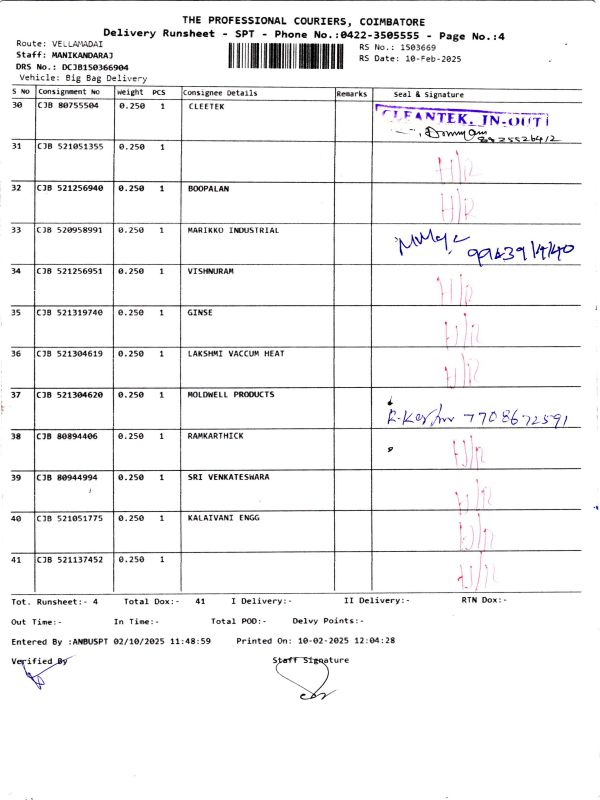 THE PROFESSIONAL COURIERS, COIMBATORE
Delivery Runsheet - SPT - Phone No.:0422-3505555 - Page No.:4
Route: VELLAMADAI
Staff: MANIKANDARAJ
DRS No.: DCJB150366904
Vehicle: Big Bag Delivery
RS No.: 1503669
RS Date: 10-Feb-2025
S No Consignment No Weight PCS Consignee Details Remarks Seal & Signature
30 CJB 80755504 0.250 1 CLEETEK CLEANTEK. IN-OUT
31 CJB 521051355 0.250 1 H/R
32 CJB 521256940 0.250 1 BOOPALAN H/R
33 CJB 520958991 0.250 1 MARIKKO INDUSTRIAL
34 CJB 521256951 0.250 1 VISHNURAM H/R
35 CJB 521319740 0.250 1 GINSE H/R
36 CJB 521304619 0.250 1 LAKSHMI VACCUM HEAT H/R
37 CJB 521304620 0.250 1 MOLDWELL PRODUCTS 7708672591
38 CJB 80894406 0.250 1 RAMKARTHICK H/R
39 CJB 80944994 0.250 1 SRI VENKATESWARA H/R
40 CJB 521051775 0.250 1 KALAIVANI ENGG H/R
41 CJB 521137452 0.250 1 H/R
Tot. Runsheet:- 4 Total Dox:- 41 I Delivery:- II Delivery:- RTN Dox:-
Out Time:- In Time:- Total POD:- Delvy Points:-
Entered By :ANBUSPT 02/10/2025 11:48:59 Printed On: 10-02-2025 12:04:28
Verified By Staff Signature